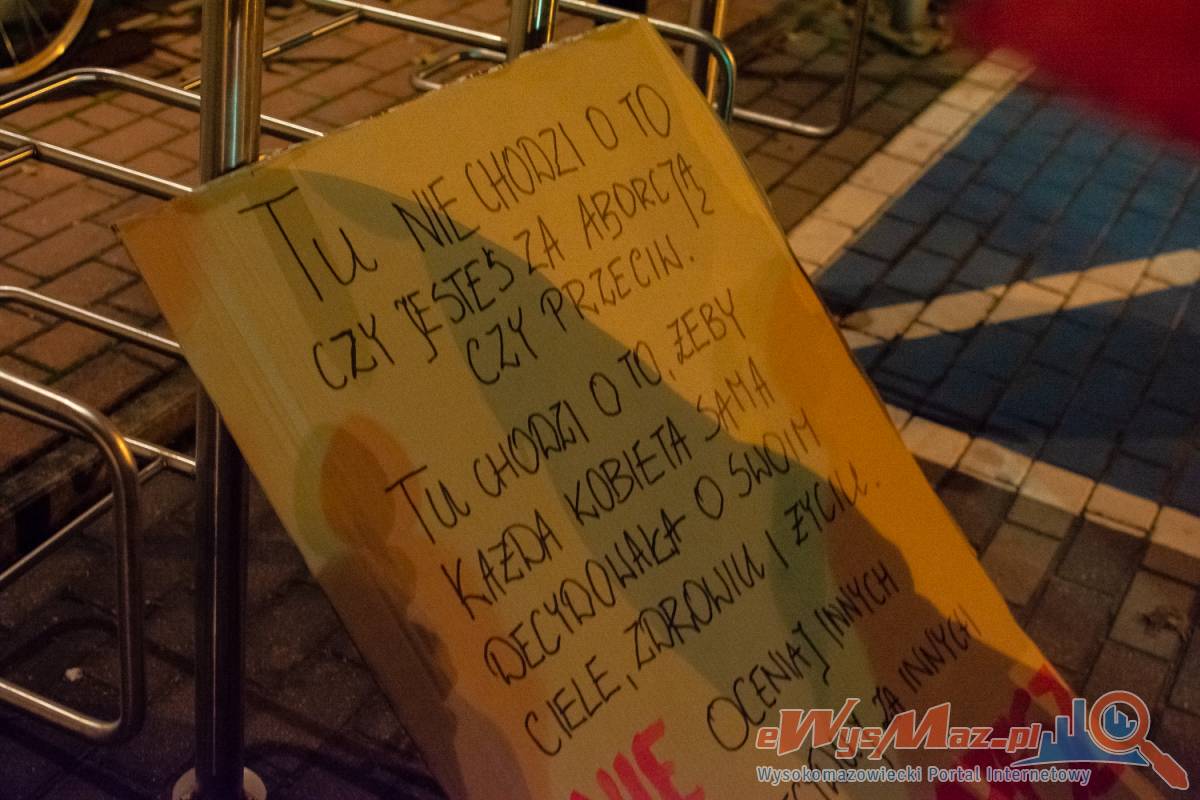 TU NIE CHODZI O TO
CZY JESTEŚ ZA ABORCJĄ
CZY PRZECIW.
TU CHODZI O TO, ŻEBY
KAŻDA KOBIETA SAMA
DECYDOWAŁA O SWOIM
CIELE, ZDROWIU I ŻYCIU.
NIE OCENIAJ INNYCH
ZA INNYCH
eWysMaz.pl
Wysokomazowiecki Portal Internetowy